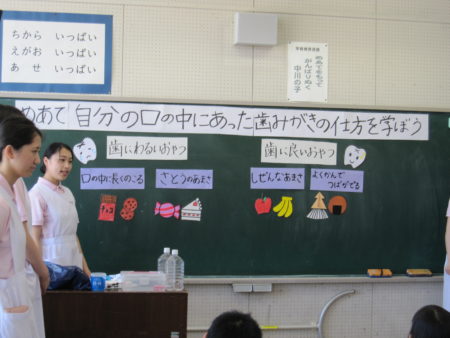 ちから いっぱい
えがお いっぱい
あせ いっぱい
めあてをもって
がんばりぬく
中川の子
めあて 自分の口の中にあった歯みがきの仕方を学ぼう
歯にわるいおやつ
歯に良いおやつ
口の中に長くのこる
さとうのあまさ
しぜんなあまさ
よくかんで
つばがでる